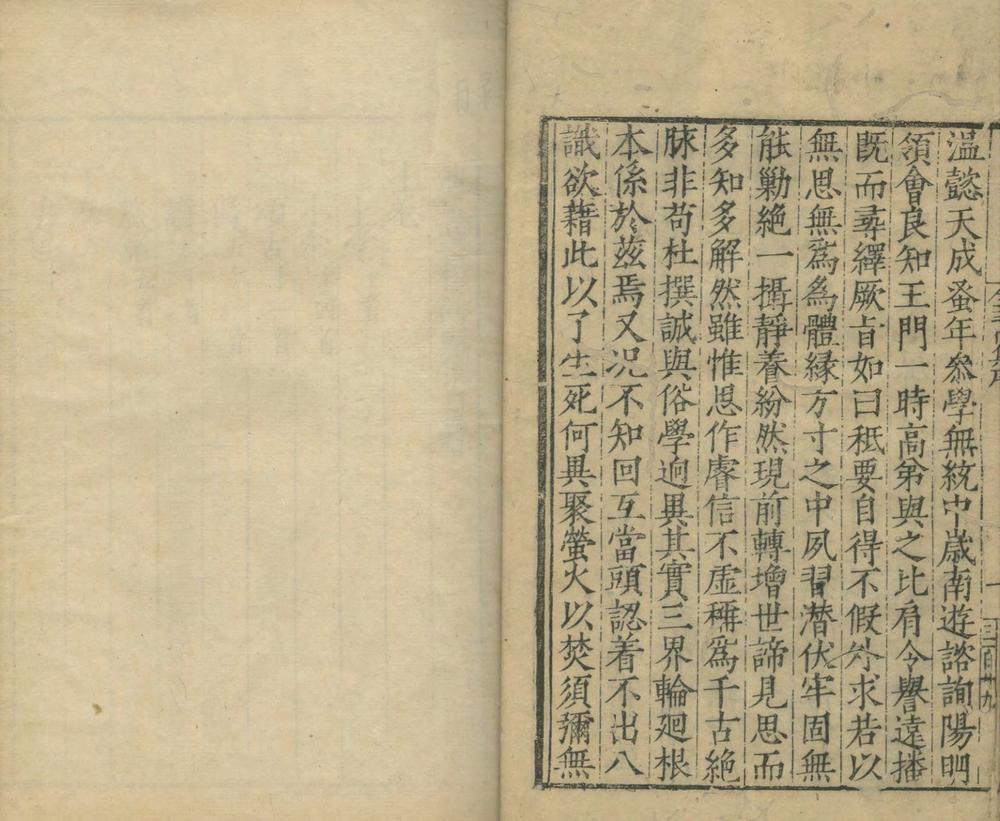 溫懿天成蚤年叅學無統中歲南遊諮詢陽明
領會良知王門一時高第與之比肩令譽遠播
旣而尋繹厥旨如曰秖要自得不假外求若以
無思無爲爲體緣方寸之中夙習潛伏牢固無
能勦絕一攝靜養紛然現前轉增世諦見思而
多知多解然雖惟思作睿信不虛稱爲千古絕
脉非茍杜撰誠與俗學逈異其實三界輪廻根
本係於茲焉又况不知回互當頭認着不出八
識欲藉此以了生死何異聚螢火以焚須彌無